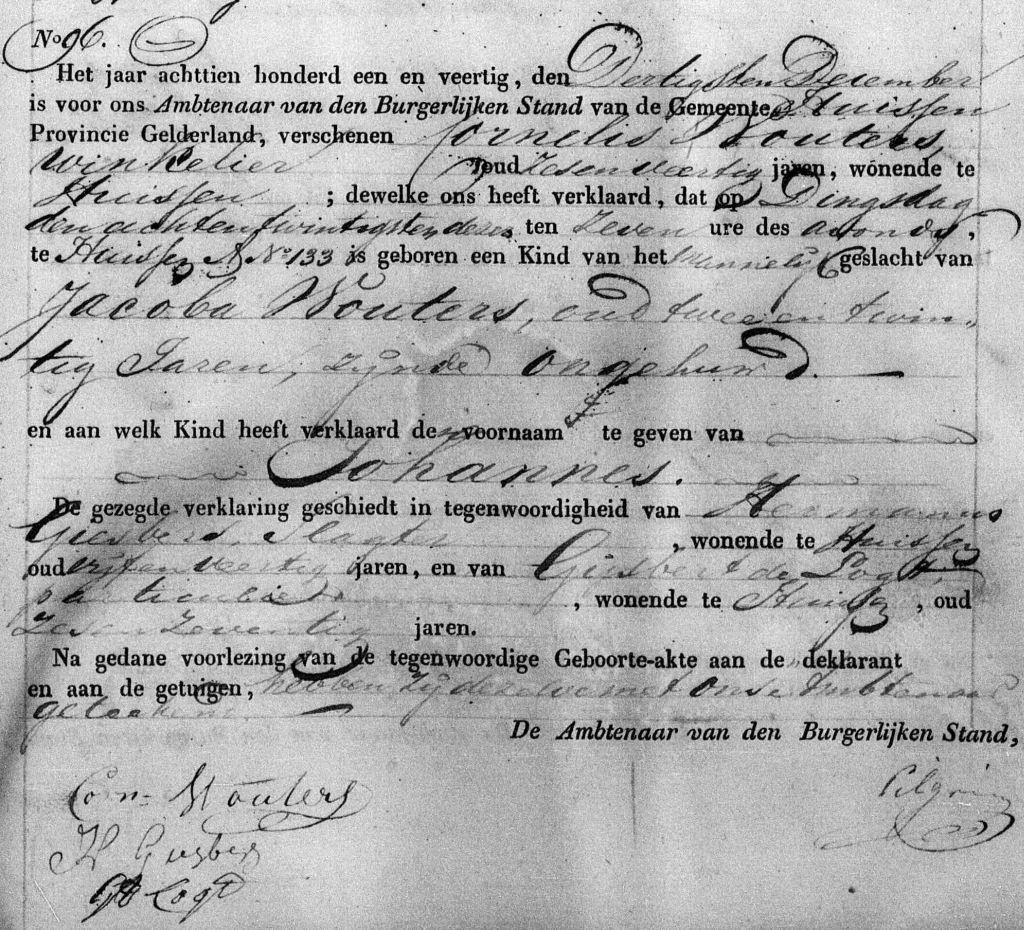 No 96.
Het jaar achttien honderd een en veertig, den Dertigsten December
is voor ons Ambtenaar van den Burgerlijken Stand van de Gemeente Huissen
Provincie Gelderland, verschenen Cornelis Wouters,
winkelier oud Zesenveertig jaren, wonende te
Huissen ; dewelke ons heeft verklaard, dat op Dingsdag
den achtentwintigsten dezer ten Zeven ure des avonds,
te Huissen A No 133 is geboren een Kind van het Mannelijk geslacht van
Jacoba Wouters, oud twee en twin„
tig Jaren, zijnde ongehuwd. —
en aan welk Kind heeft verklaard de voornaam te geven van
Johannes.
De gezegde verklaring geschiedt in tegenwoordigheid van Hermanus
Giesbers, Slagter , wonende te Huissen
oud vijfenveertig jaren, en van Giesbert de Logt,
particulier , wonende te Huissen , oud
Zesenzeventig jaren.
Na gedane voorlezing van de tegenwoordige Geboorte-akte aan de deklarant
en aan de getuigen, hebben zij dezelve met ons Ambtenaar
geteekend. —
De Ambtenaar van den Burgerlijken Stand,
Corn Wouters
Pilgrim
H Giesbers